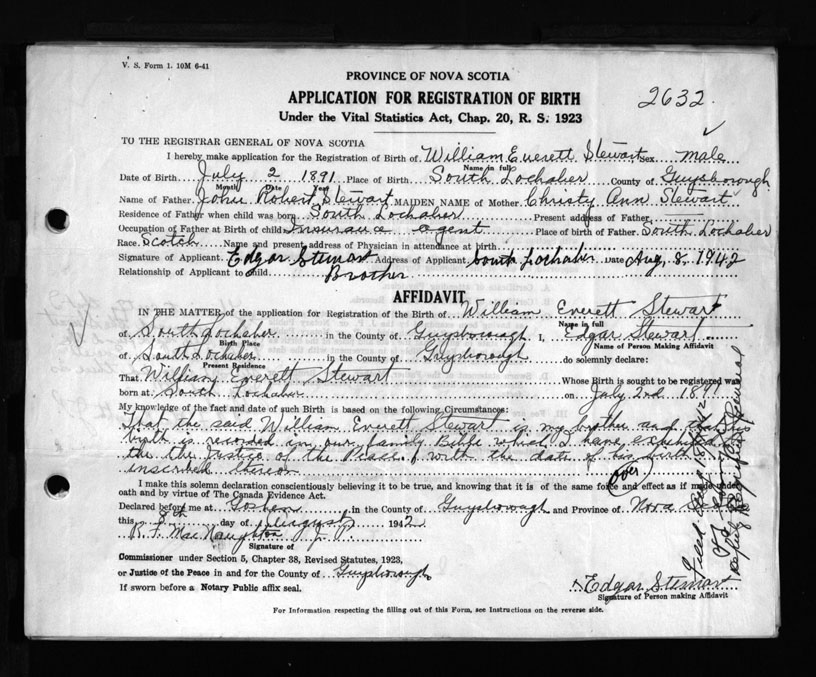 V. S. Form 1. 10M 6-41
PROVINCE OF NOVA SCOTIA
APPLICATION FOR REGISTRATION OF BIRTH
2632
Under the Vital Statistics Act, Chap. 20, R. S. 1923
TO THE REGISTRAR GENERAL OF NOVA SCOTIA
I hereby make application for the Registration of Birth of William Everett Stewart Sex male
Name in full
Date of Birth July 2 1891 Place of Birth South Lochaber County of Guysborough
Month Date Year
Name of Father John Robert Stewart MAIDEN NAME of Mother Christy Ann Stewart
Residence of Father when child was born South Lochaber Present address of Father
Occupation of Father at Birth of child Insurance agent Place of birth of Father South Lochaber
Race Scotch Name and present address of Physician in attendance at birth
Signature of Applicant Edgar Stewart Address of Applicant South Lochaber Date Aug. 8, 1942
Relationship of Applicant to child Brother
AFFIDAVIT
IN THE MATTER of the application for Registration of the Birth of William Everett Stewart
Name in full
of South Lochaber in the County of Guysborough I, Edgar Stewart
Birth Place Name of Person Making Affidavit
of South Lochaber in the County of Guysborough do solemnly declare:
Present Residence
That William Everett Stewart Whose Birth is sought to be registered was
born at South Lochaber on July 2nd 1891
My knowledge of the fact and date of such Birth is based on the following Circumstances:
That the said William Everett Stewart is my brother and that his
birth is recorded in our family Bible which I have exhibited to
the the Justice of the Peace, with the date of his birth
inscribed thereon
over
I make this solemn declaration conscientiously believing it to be true, and knowing that it is of the same force and effect as if made under
oath and by virtue of The Canada Evidence Act.
Declared before me at Goshen in the County of Guysborough and Province of Nova Scotia
this 8th day of August 1942
R. F. MacNaughton J. P.
Signature of
Commissioner under Section 5, Chapter 38, Revised Statutes, 1923,
or Justice of the Peace in and for the County of Guysborough
If sworn before a Notary Public affix seal.
Edgar Stewart
Signature of Person making Affidavit
For Information respecting the filling out of this Form, see Instructions on the reverse side.
Deputy Registrar General